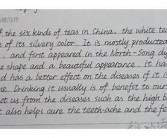 f the six kinds of teas in China, the white tea
n of its silvery color. It is mostly producted
, and first appeared in the North-Song dy
e shape and a beautiful appearance. it has
d has a better effect on the diseases of it is
ne. Drinking it usually is of benefit to our
t us from the diseases such as the high b
t also helps cure the teeth-ache and the fe